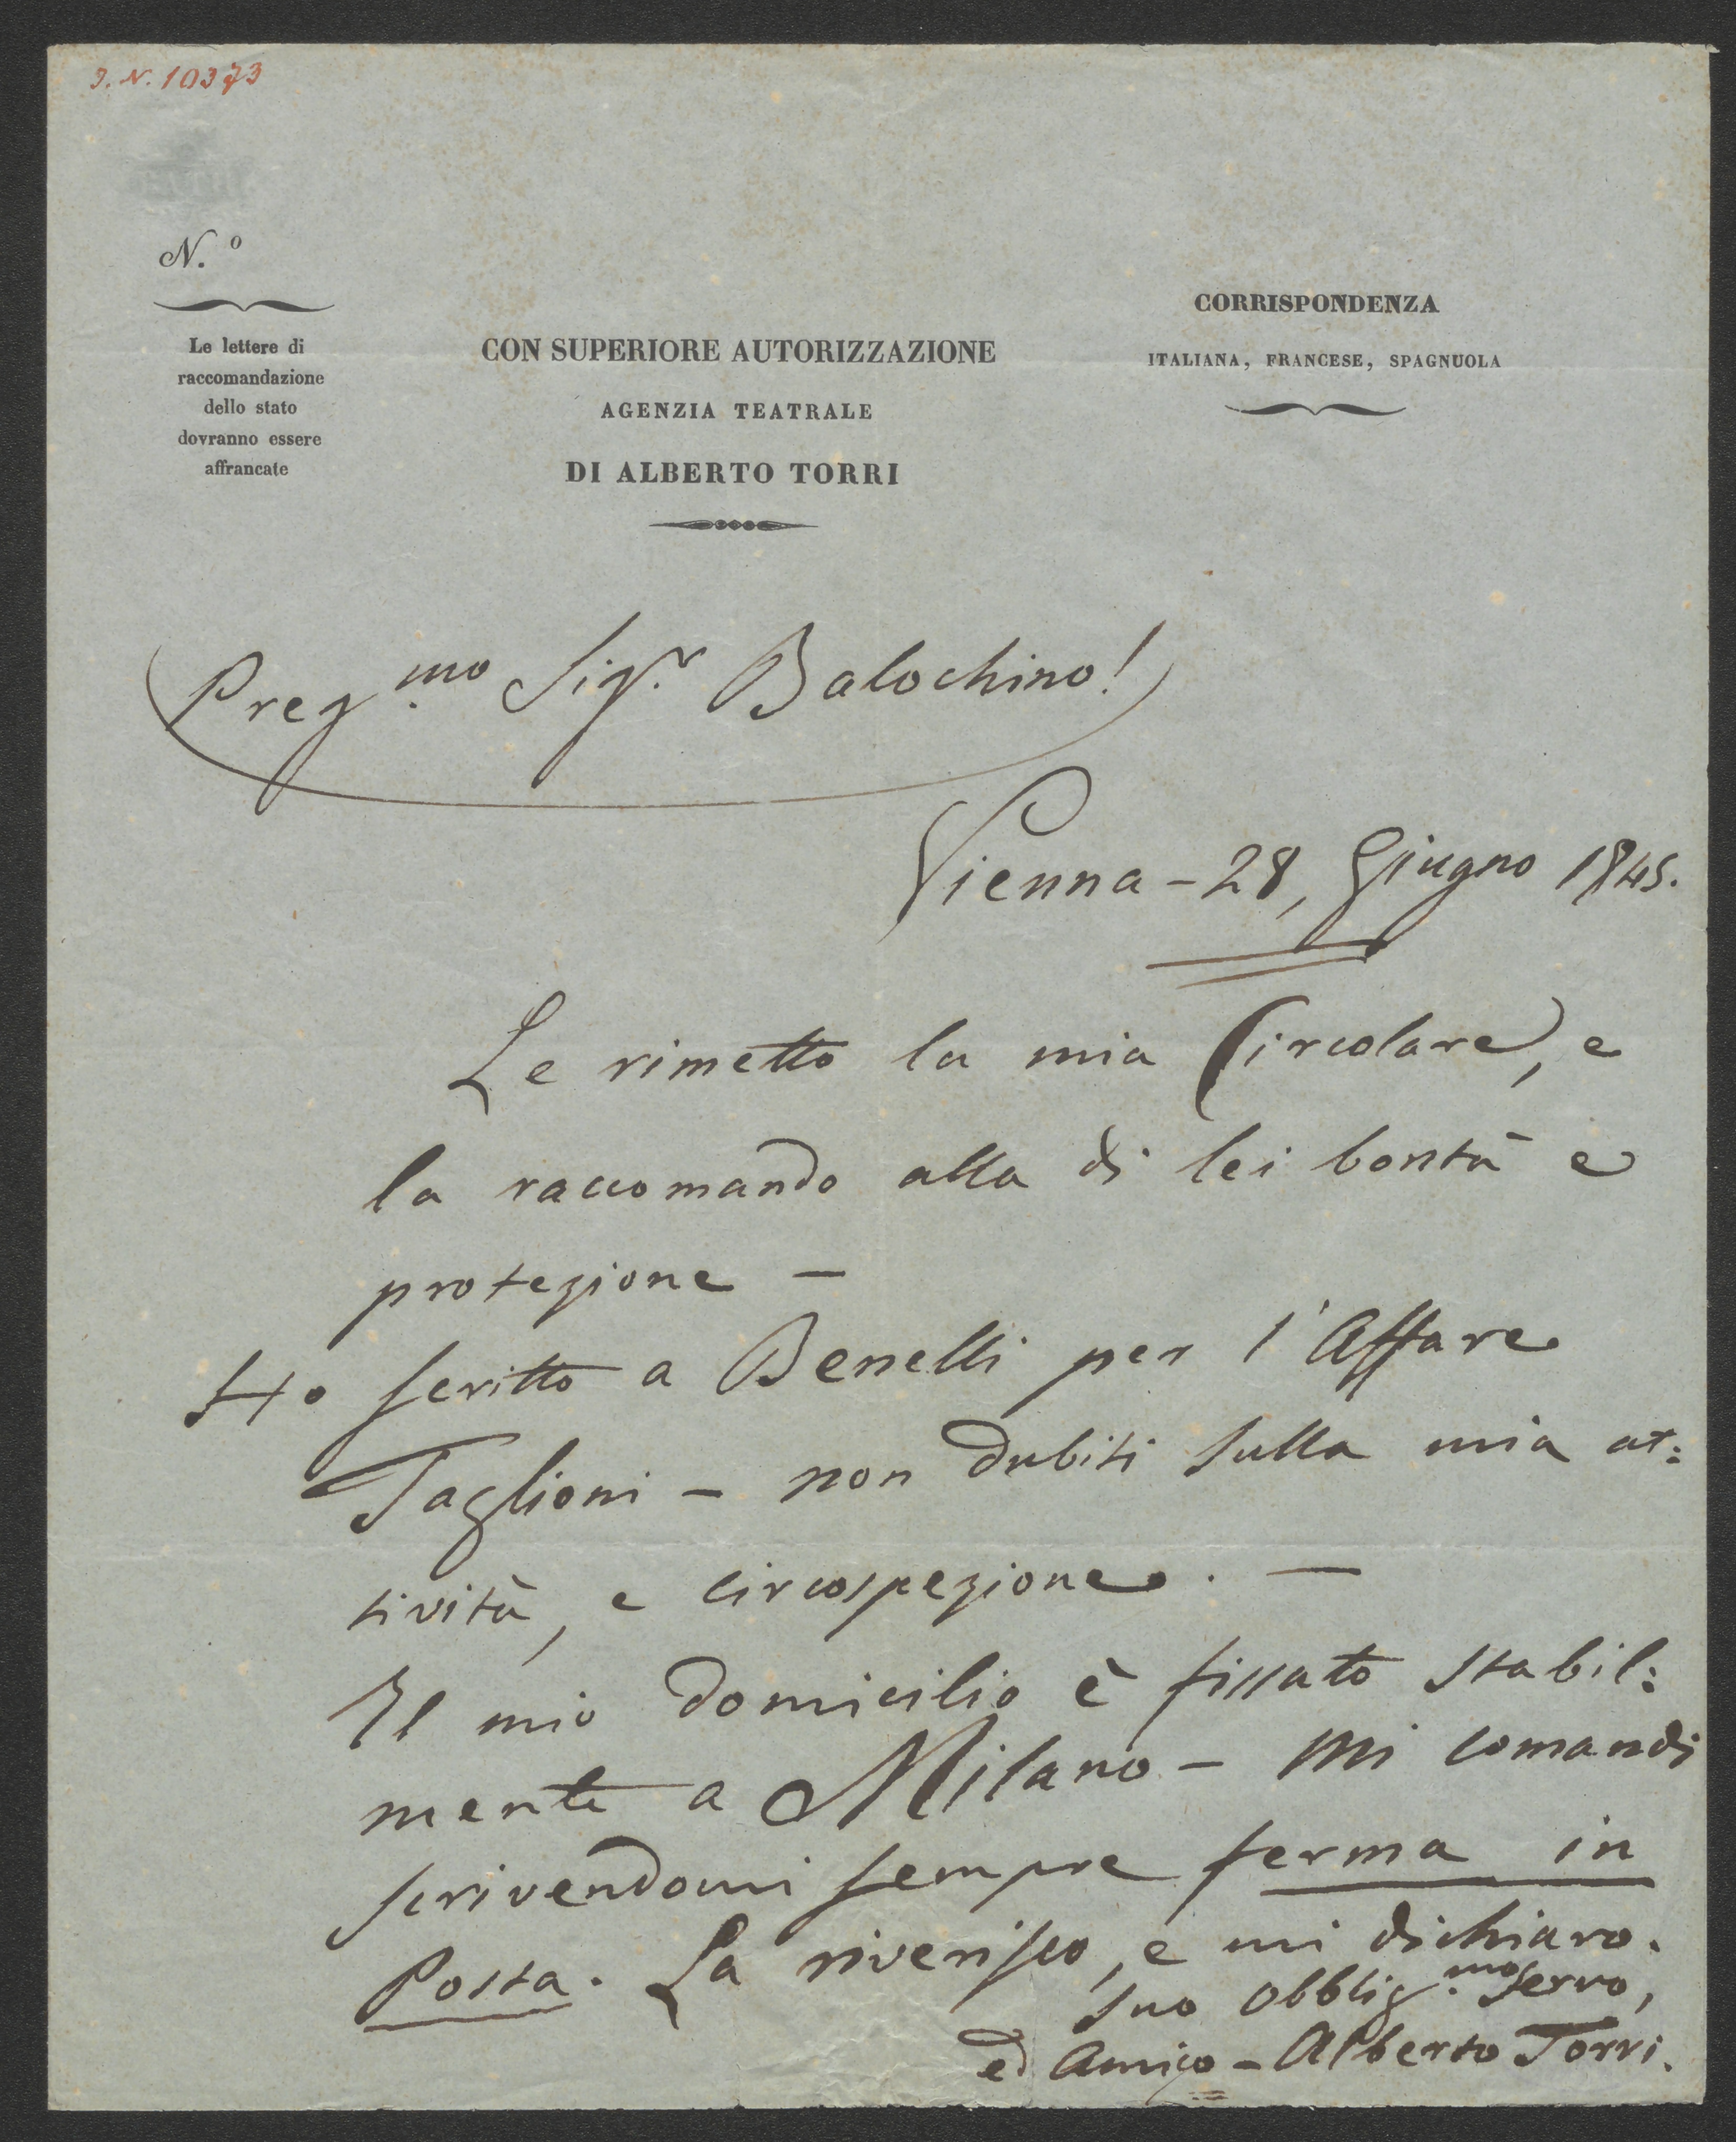 I. N. 10373
N.º
Le lettere di
raccomandazione
dello stato
dovranno essere
affrancate
CON SUPERIORE AUTORIZZAZIONE
AGENZIA TEATRALE
DI ALBERTO TORRI
CORRISPONDENZA
ITALIANA, FRANCESE, SPAGNUOLA
Preg.mo Sig.r Balochino!
Vienna - 28, Giugno 1845.
Le rimetto la mia Circolare, e
la raccomando alla di lei bontà e
protezione —
Ho scritto a Benelli per l'Affare
Taglioni - non dubiti sulla mia at:
tività, e circospezione. —
Il mio domicilio è fissato stabil:
mente a Milano - Mi comandi
scrivendomi sempre ferma in
Posta. La riverisco, e mi dichiaro.
Suo Obblig.mo Servo,
ed Amico - Alberto Torri.